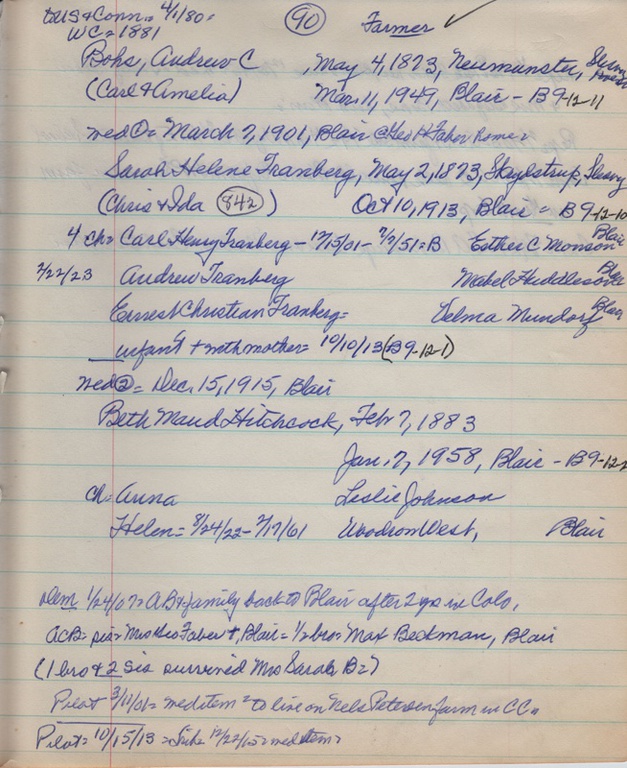 to US & Conn = 4/1/80 = (90) Farmer ✓
WC = 1881
Bohs, Andrew C , May 4, 1873, Neumunster,
(Carl & Amelia) Mar. 11, 1949, Blair - B9-12-11
med ① = March 7, 1901, Blair @ Geo H Faber home =
Sarah Helene Tranberg, May 2, 1873, Skydstrup,
(Chris & Ida (842) ) Oct 10, 1913, Blair = B 9-12-10
4 ch = Carl Henry Tranberg - /01 - /51 = B Esther C Monson Blair
2/22/23 Andrew Tranberg Mabel Huddleson Blair
Ernest Christian Tranberg = Velma Mundorf Blair
infant + with mother = 10/10/13 (B9-12-1)
med ② = Dec. 15, 1915, Blair
Beth Maud Hitchcock, Feb 7, 1883
Jan. 7, 1958, Blair - B9-12-
ch = Anna Leslie Johnson
Helen = 8/24/22 - /17/61 Woodrow West, Blair
Dem 1/24/07 = AB & family back to Blair after 2 yrs in Colo.
ACB = sis = Mrs Geo Faber +, Blair = 1/2 bro = Max Beckman, Blair
(1 bro & 2 sis survived Mrs Sarah B =)
Pilot 3/11/01 = med item = to live on Nels Petersen farm in CC =
Pilot = 10/15/13 = 12/22/15 = med item =